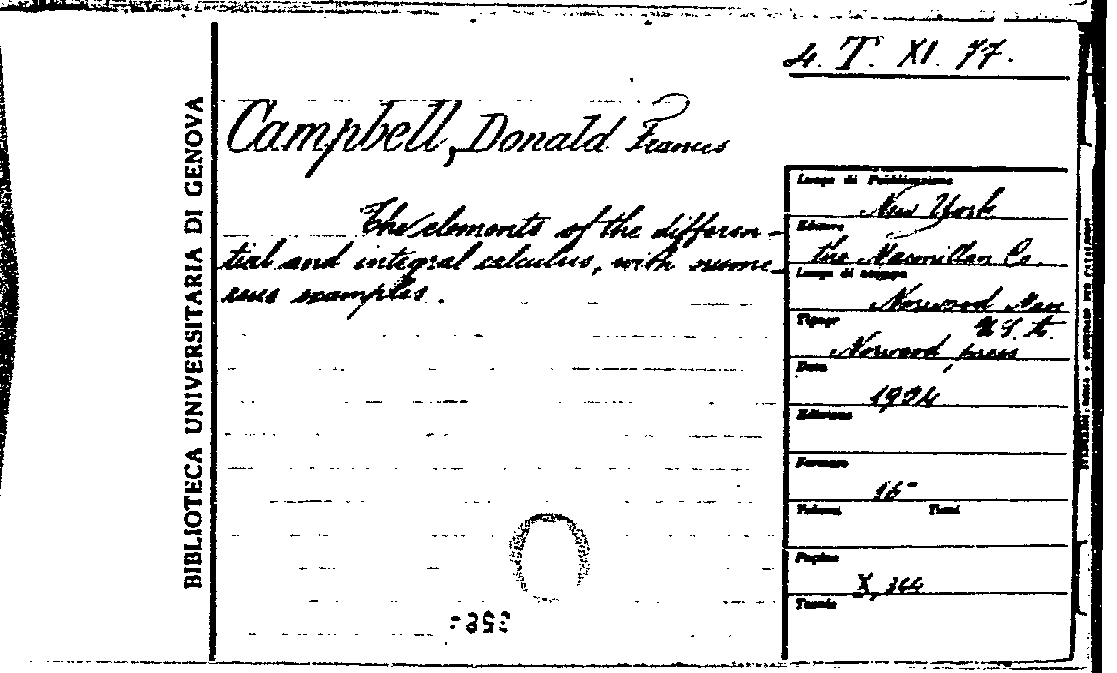 4. T. XI. 77.
BIBLIOTECA UNIVERSITARIA DI GENOVA
Campbell, Donald Francis
The elements of the differen-
tial and integral calculus, with nume-
rous examples.
Luogo di Pubblicazione
New York
Editore
the Macmillan Co.
Luogo di stampa
Norwood Mass
U.S.A.
Tipogr
Norwood press
Data
1904
Edizione
Formato
16°
Volumi Tomi
Pagine
X, 364
Tavole